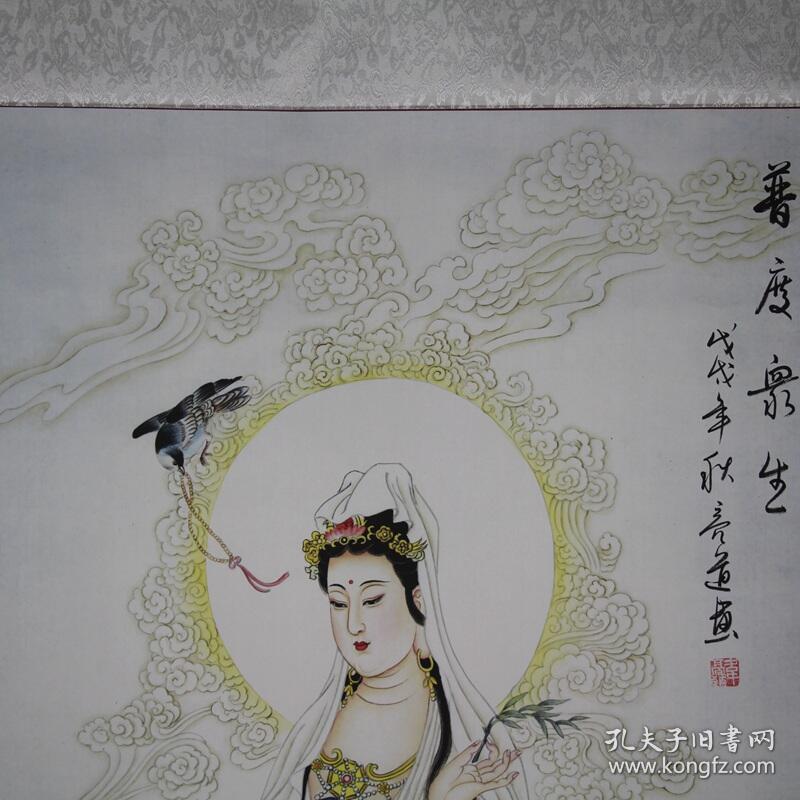 普度眾生
戊戌年秋亮道画
孔夫子旧书网
www.kongfz.com